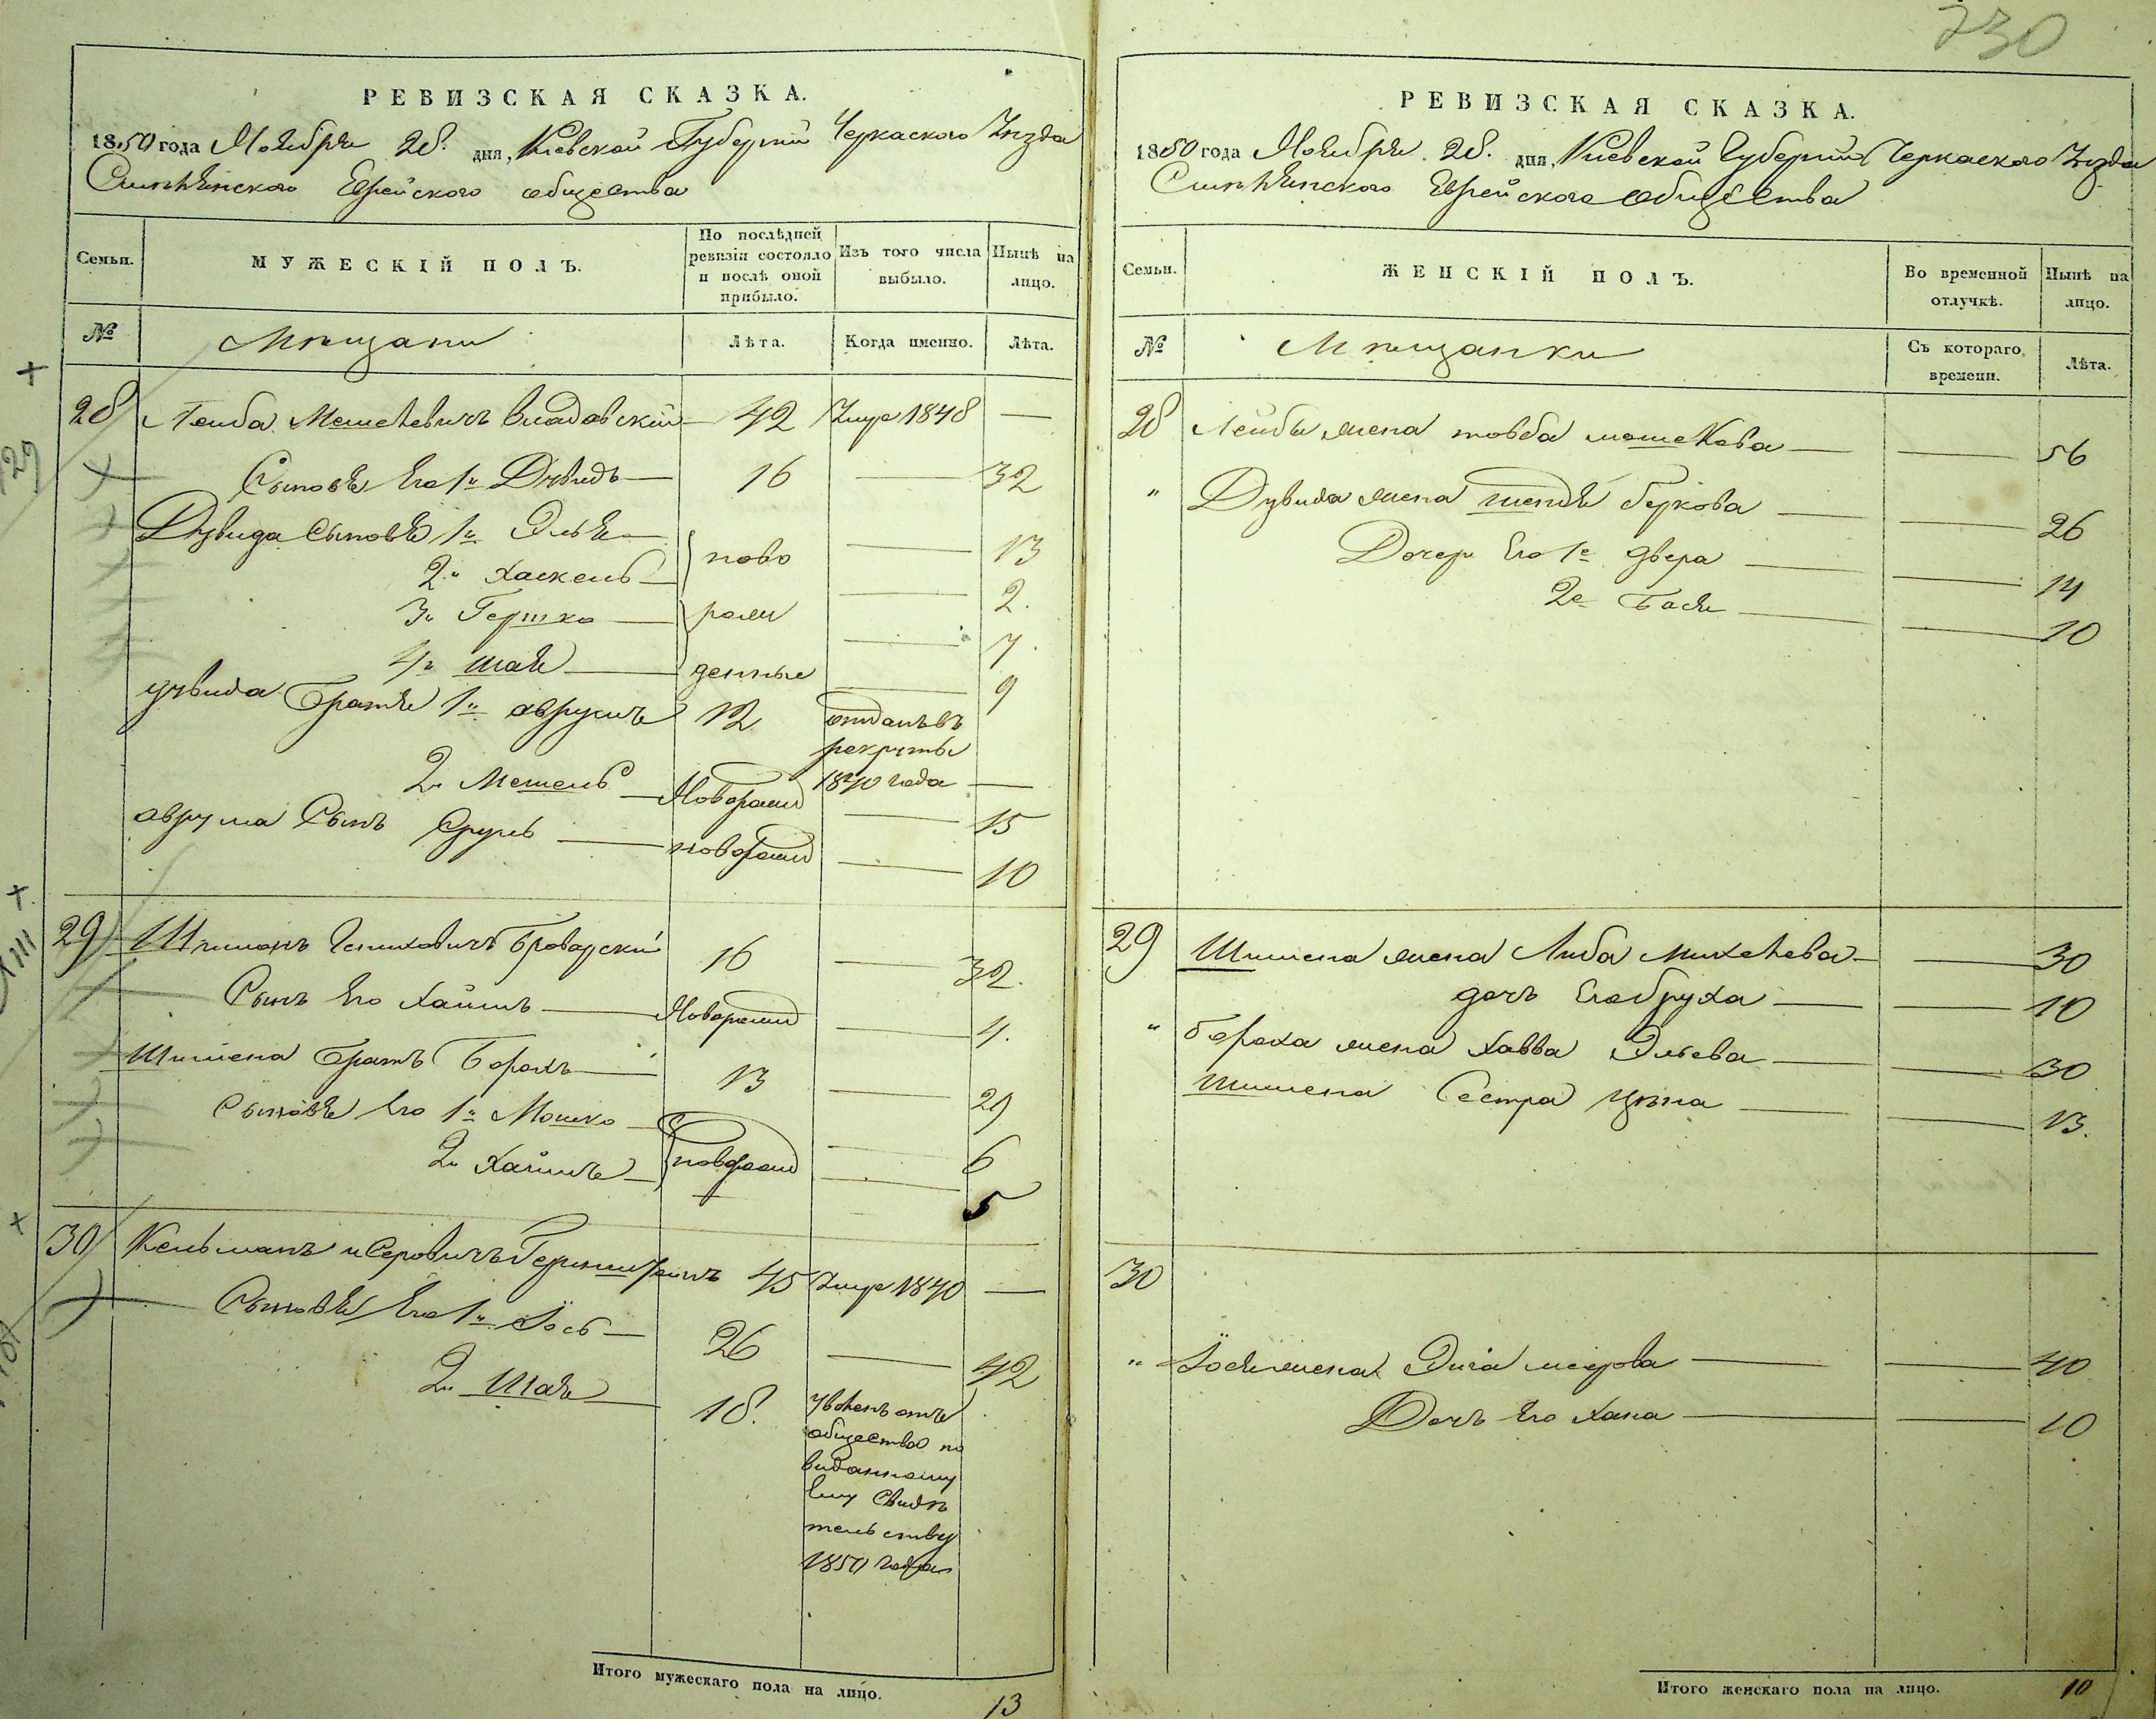 730
РЕВИЗСКАЯ СКАЗКА.
1850 года Ноября 28. дня, Киевской Губернии Черкаского Уезда
Смелянского Еврейского общества
Семьи.
МУЖЕСКІЙ ПОЛЪ.
По послѣдней ревизіи состояло и послѣ оной прибыло.
Изъ того числа выбыло.
Нынѣ на лицо.
№
Мещани
Лѣта.
Когда именно.
Лѣта.
28 Леиба Мошковичъ 42 Умре 1848 —
Сыновя Его 1й Дувидъ — 16 — 32
Дувида Сыновя 1й Эля — ново — 13
2й Хаскель — — 2.
3й Гершко — рож — 7.
4й Шая — денные — 9
дувида Братя 1й аврумъ 12 отданъ въ
рекруты
1840 года —
2й Мошель — Новорожд — 15
аврума Сынъ Сруль — новорожд — 10
29 Шимонъ Броварский 16 — 32.
Сынъ Его Хаимъ — Новорожд — 4.
Шимена Братъ Борохъ — 13 — 29
Сыновя Его 1й Мошко — новорожд — 6
2й Хаимъ — — 5
30 Кельманъ 45 Умре 1840 —
Сыновя Его 1й Іось — 26 — 42
2й Шая — 18. уволенъ отъ
общества по
виданному
Ему Свиде
тельству
1850 года
Итого мужескаго пола на лицо. 13
РЕВИЗСКАЯ СКАЗКА.
1850 года Ноября 28. дня, Киевской Губернии Черкаского Уезда
Смелянского Еврейского общества
Семьи.
ЖЕНСКІЙ ПОЛЪ.
Во временной отлучкѣ.
Нынѣ на лицо.
№
Мещанки
Съ котораго времени.
Лѣта.
28 Лейбы жена товба — — 56
" Дувида жена Шендя Беркова — — 26
Дочери Его 1е двера — — 14
2е Бася — — 10
29 Шимена жена Либа — — 30
дочъ Его бруха — — 10
" бороха жена Хавва Эльева — — 30
Шимена Сестра Ципа — — 13.
30
" Іося жена — — 40
Дочъ Его Хана — — 10
Итого женскаго пола на лицо. 10